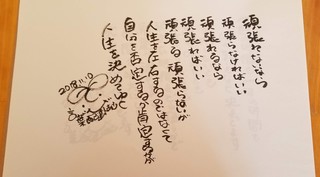 頑張れないなら
頑張らなければいい
頑張れるなら
頑張ればいい
頑張る頑張らないが
人生を左右するのではなくて
自分を否定するか肯定するかが
人生を決めてゆく
2018.11.10